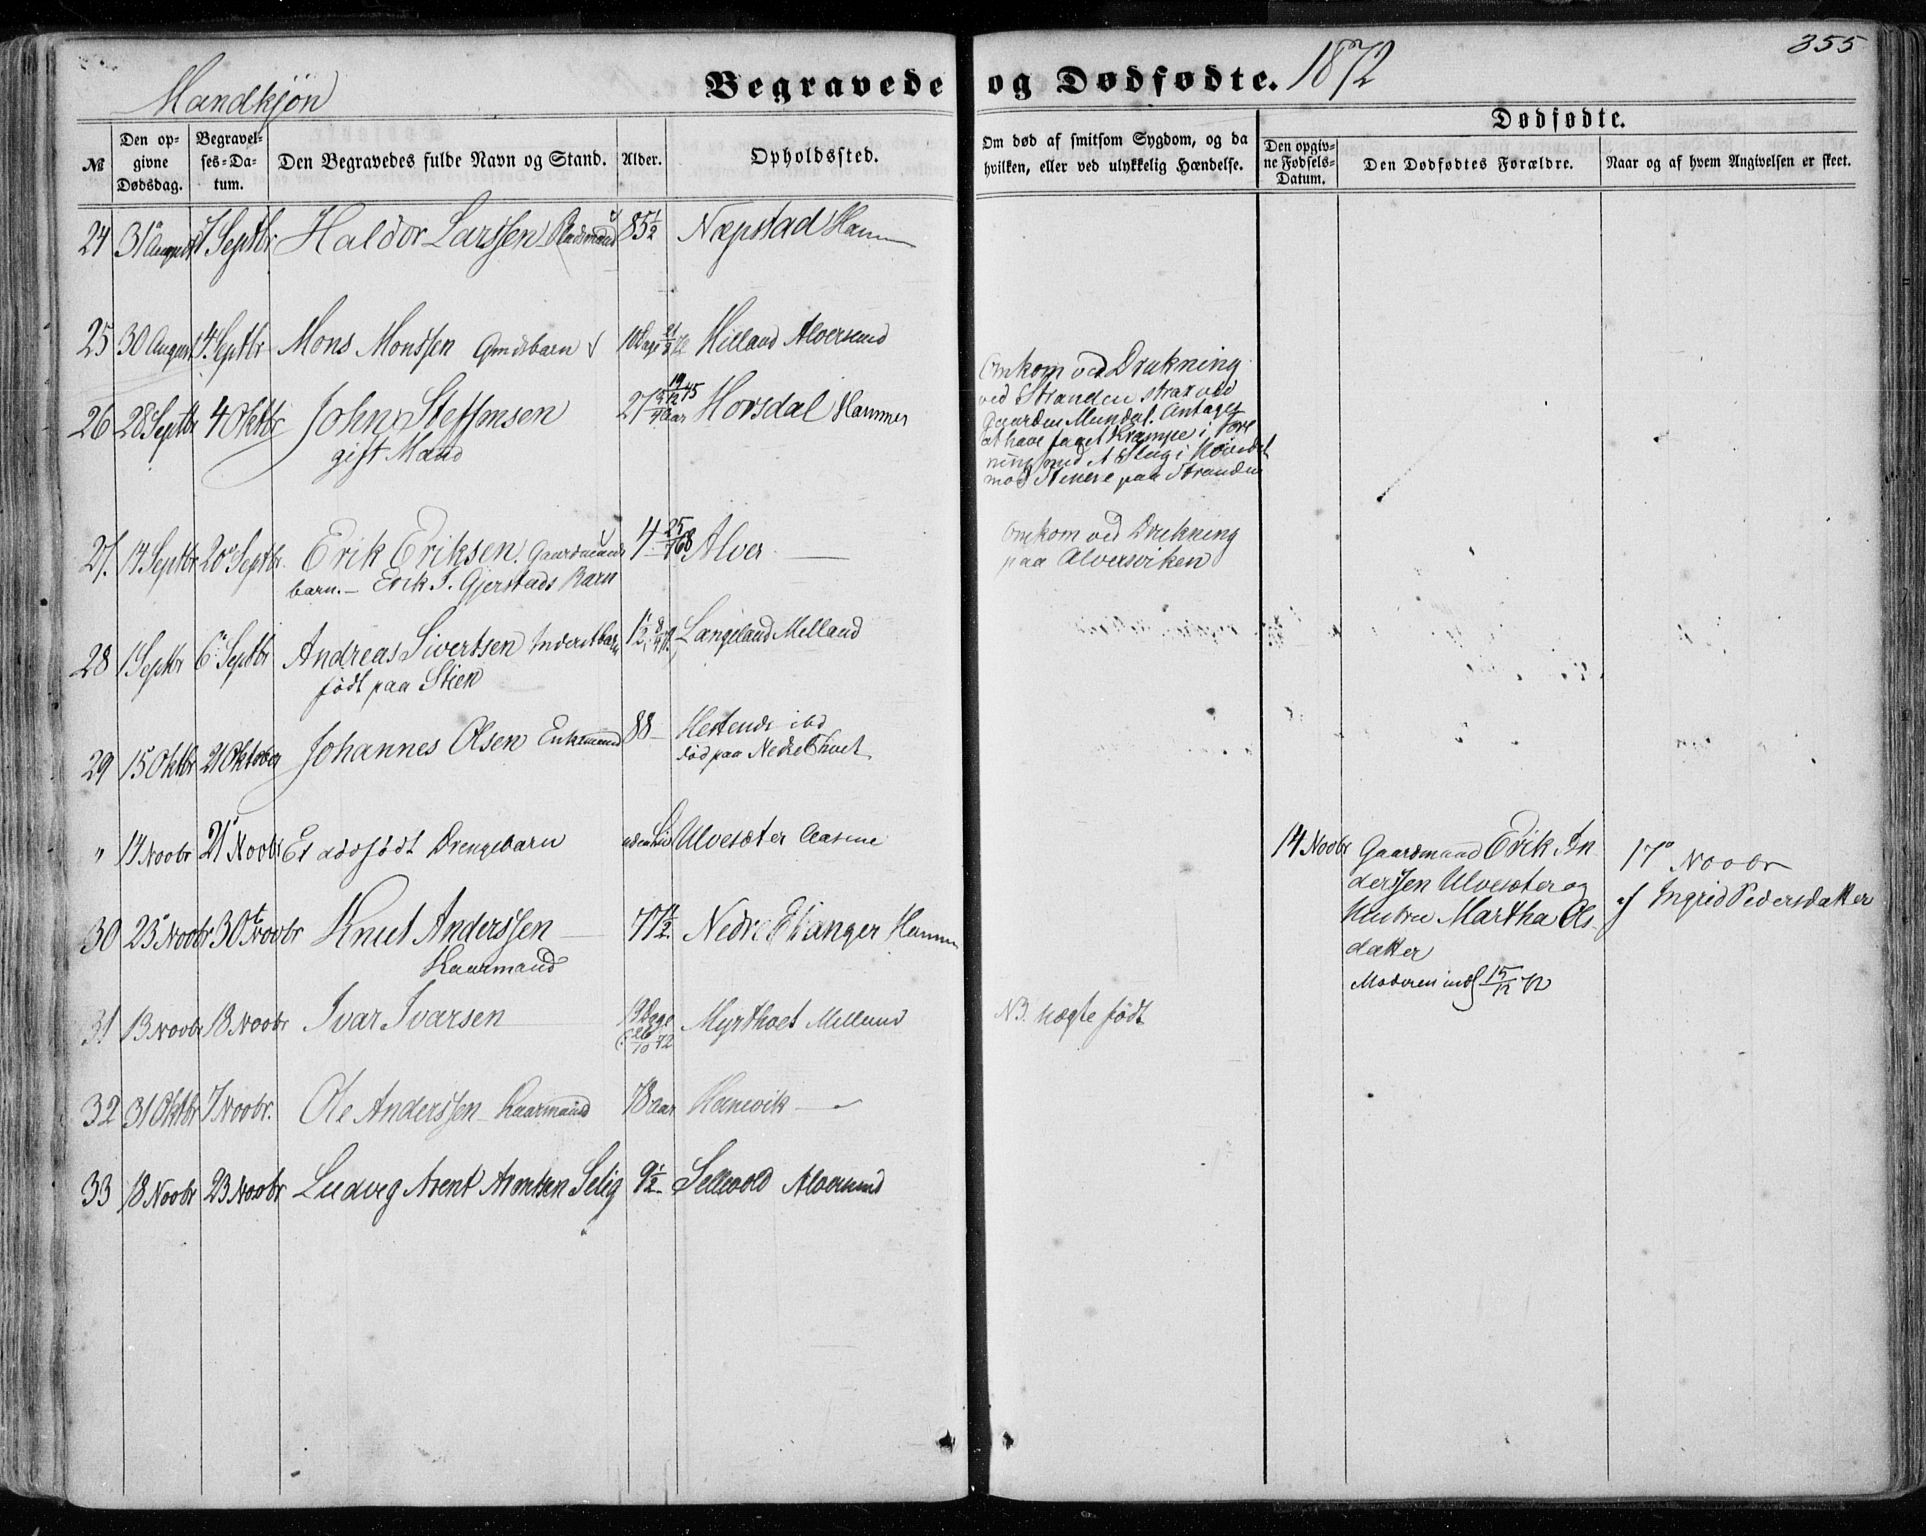 355
Mandkjøn
Begravede og Dødfødte. 1872
Dødfødte.
№
Den opgivne Dødsdag.
Begravelses-Datum.
Den Begravedes fulde Navn og Stand.
Alder.
Opholdssted.
Om død af smitsom Sygdom, og da hvilken, eller ved ulykkelig Hændelse.
Den opgivne Fødsels-Datum.
Den Dødfødtes Forældre.
Naar og af hvem Angivelsen er skeet.
24 31 August 7 Septbr Haldor Larssen 85½ Næpstad Ham
25 30 August 4 Septbr Mons Monssen 10 Dage 21/8 72 Hilland Alversund
26 28 Septbr 4 Oktbr John Steffensen 27 19/12 45 Horsdal Hammer
gift Mand
Omkom ved Drukning
ved Stranden strax ved
Gaarden Mundal. Antages
at have faaet Krampe i For
ning med et Slag i Hovedet
mod Stenene paa Stranden
27. 14 Septbr 20 Septbr. Erik Eriksen. Gaardmands 4 25/7 68 Alver —
barn. — Erik I. Gjerstads Barn
Omkom ved Drukning
paa Alversviken
28 1 Septbr 6 Septbr Andreas Sivertsen Inderstbarn 1½ Langeland Melland
født paa Stien
29 15 Oktbr 21 Oktober Johannes Olsen Enkemand 88 — Hestenes ibd
død paa Nedre
" 14 Noobr 21 Noobr Et dødfødt Drengebarn uden Liv Ulvesæter Aasene
14 Noobr Gaardmand Erik An
derssen Ulvesæter og
Hustru Martha Ols
datter
Moderen indl 15/12 72
17 Noobr
af Ingrid Pedersdatter
30 23 Noobr 30 Noobr Knut Anderssen — 77½ Nedre Ham
Kaarmand
31 13 Noobr 18 Noobr Ivar Ivarsen 19 Dage 26/10 72 Myrtvet Melland
NB. uægte født
32 31 Oktbr 7 Noobr. Ole Anderssen Kaarmand 78 Aar Hanevik —
33 18 Noobr 23 Noobr Ludvig Arent Arentsen Selig 9½ Sellevold Alversund